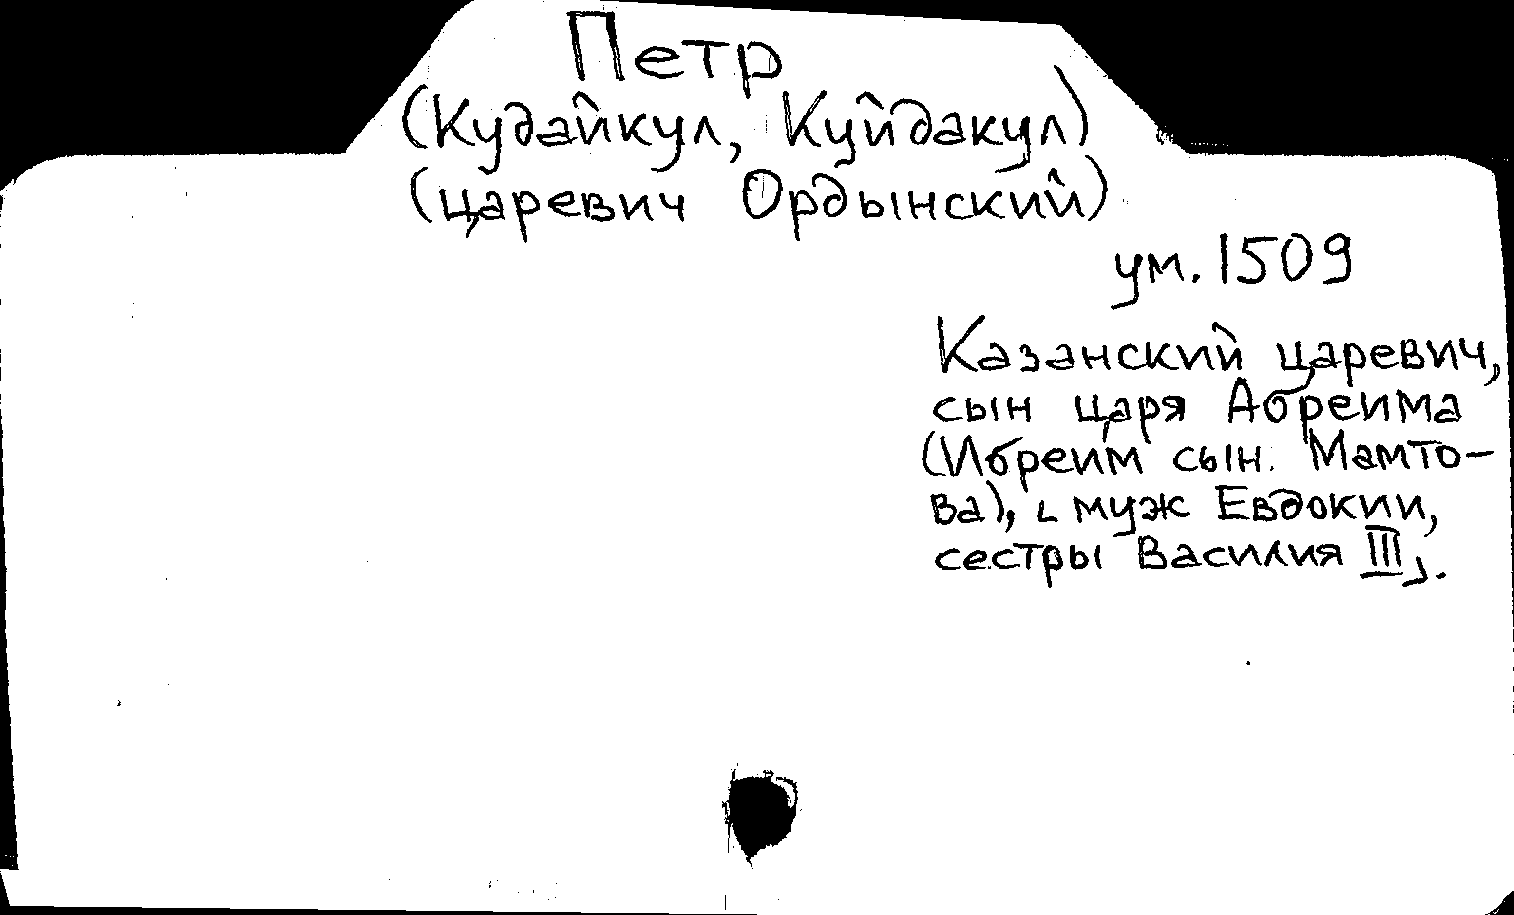 Петр
(Кудайкул, Куйдакул)
(царевич Ордынский)
ум. 1509
Казанский царевич,
сын царя Абреима
(Ибреим сын. Мамто-
ва), муж Евдокии,
сестры Василия III,.